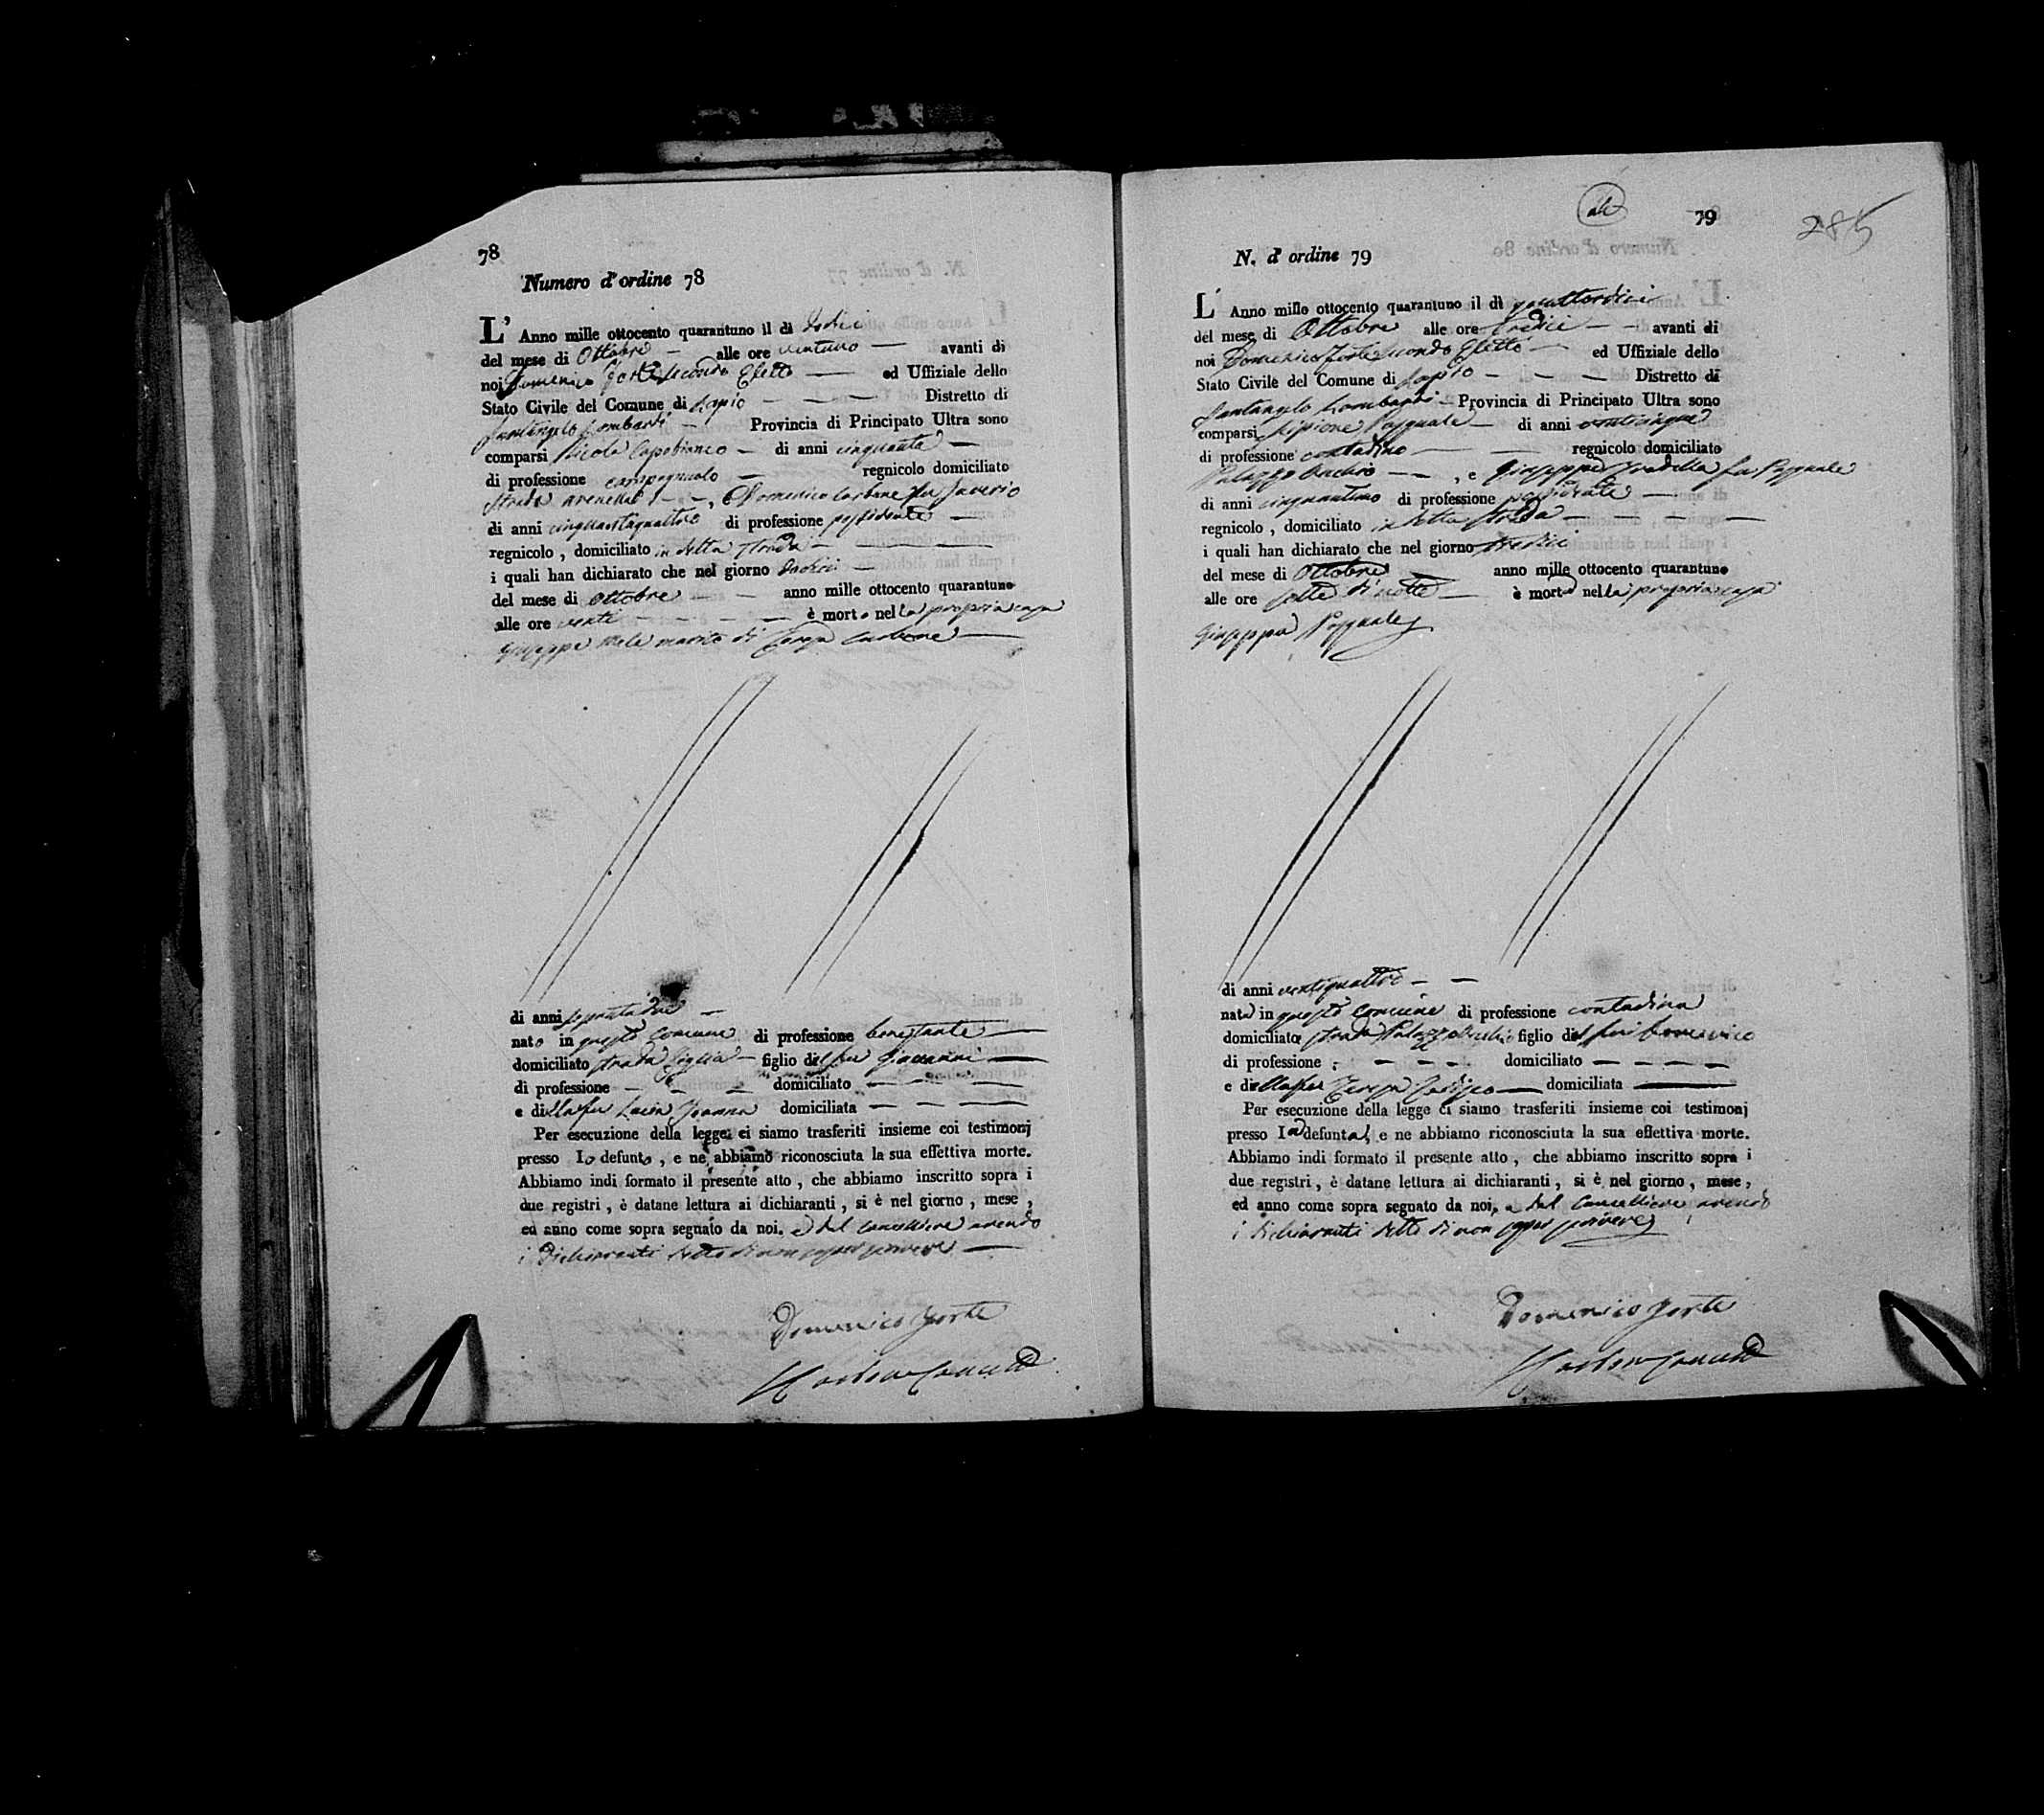 78
Numero d'ordine 78
L' Anno mille ottocento quarantuno il di dodici
del mese di Ottobre alle ore ventuno avanti di
noi Domenico Forte Secondo Eletto ed Uffiziale dello
Stato Civile del Comune di Lapio Distretto di
Santangelo Lombardi Provincia di Principato Ultra sono
comparsi Nicola Capobianco di anni cinquanta
di professione campagnuolo regnicolo domiciliato
Strada , e Domenico Carbone fu Saverio
di anni cinquantaquattro di professione possidente
regnicolo , domiciliato in detta strada
i quali han dichiarato che nel giorno dodici
del mese di Ottobre anno mille ottocento quarantuno
alle ore venti è morto nella propria casa
Giuseppe Mele marito di Teresa Carbone
di anni
nato in questo Comune di professione benestante
domiciliato strada figlio del fu Giovanni
di professione domiciliato
e della fu Lucia domiciliata
Per esecuzione della legge ci siamo trasferiti insieme coi testimonj
presso lo defunto , e ne abbiamo riconosciuta la sua effettiva morte.
Abbiamo indi formato il presente atto , che abbiamo inscritto sopra i
due registri , è datane lettura ai dichiaranti , si è nel giorno , mese ,
ed anno come sopra segnato da noi. e dal Cancelliere avendo
i dichiaranti detto di non saper scrivere
Domenico Forte
79
285
N. d' ordine 79
L' Anno mille ottocento quarantuno il di quattordici
del mese di Ottobre alle ore tredici avanti di
noi Domenico Forte Secondo Eletto ed Uffiziale dello
Stato Civile del Comune di Lapio Distretto di
Santangelo Lombardi Provincia di Principato Ultra sono
comparsi Scipione Pasquale di anni venticinque
di professione contadino regnicolo domiciliato
Palazzo Vecchio , e Giuseppe fu Pasquale
di anni cinquantuno di professione possidente
regnicolo , domiciliato in detta strada
i quali han dichiarato che nel giorno tredici
del mese di Ottobre anno mille ottocento quarantuno
alle ore sette di notte è morta nella propria casa
Giuseppa Pasquale
di anni ventiquattro
nata in questo comune di professione contadina
domiciliata strada Palazzo Vecchio figlio del fu Domenico
di professione domiciliato
e della fu Teresa domiciliata
Per esecuzione della legge ci siamo trasferiti insieme coi testimonj
presso la defunta , e ne abbiamo riconosciuta la sua effettiva morte.
Abbiamo indi formato il presente atto , che abbiamo inscritto sopra i
due registri , è datane lettura ai dichiaranti , si è nel giorno , mese ,
ed anno come sopra segnato da noi, e dal Cancelliere avendo
i dichiaranti detto di non saper scrivere
Domenico Forte